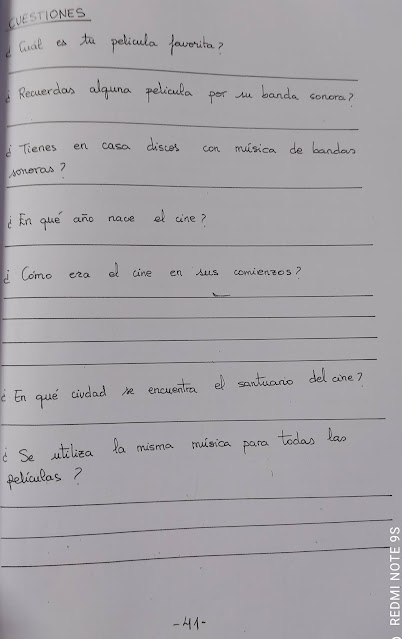 CUESTIONES
¿ Cuál es tu película favorita?
¿ Recuerdas alguna película por su banda sonora?
¿ Tienes en casa discos con música de bandas
sonoras?
¿ En qué año nace el cine?
¿ Cómo era el cine en sus comienzos?
¿ En qué ciudad se encuentra el santuario del cine?
¿ Se utiliza la misma música para todas las
películas?
-41-
REDMI NOTE 9S